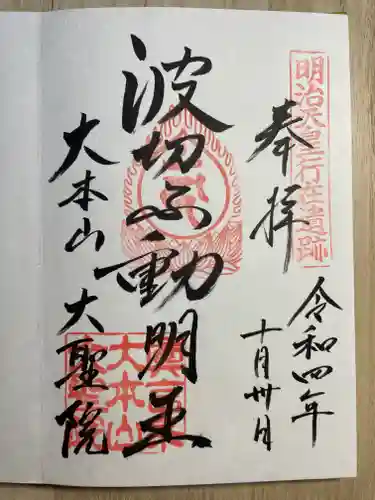 明治天皇行在遺跡
奉拝
令和四年
十月卅日
波切ふ動明王
大本山大聖院